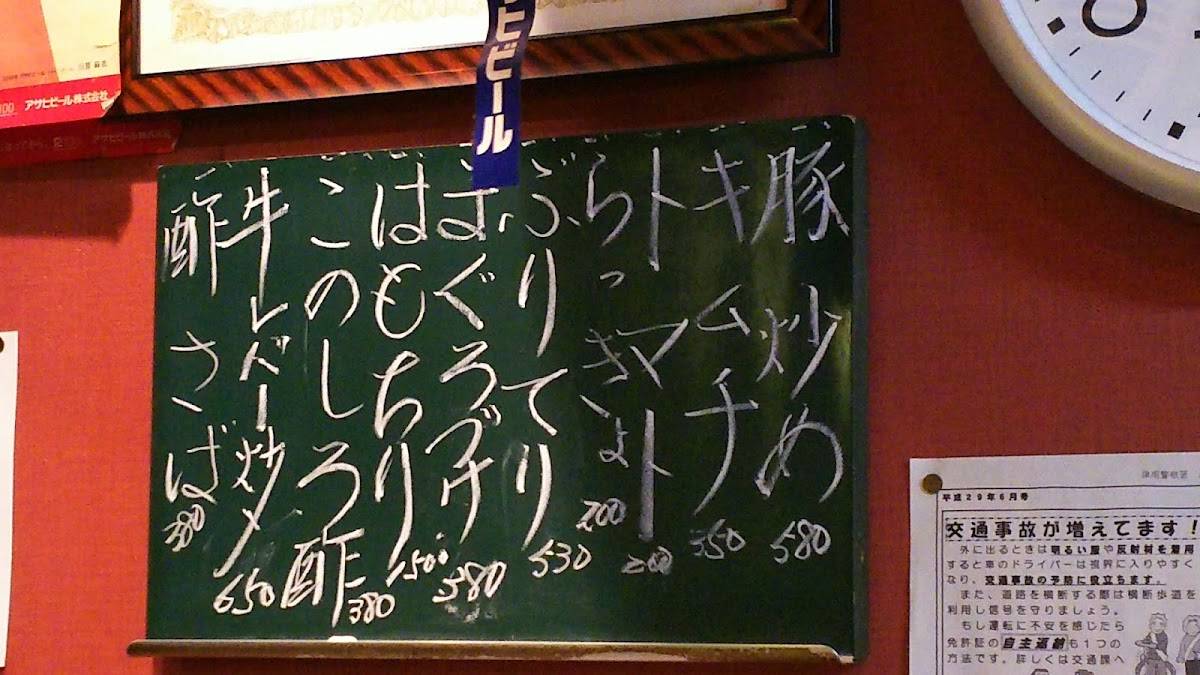 アサヒビール株式会社
アサヒビール株式会社
ヒビール
豚炒め 580
キムチ 350
トマト 200
らっきょ 200
ぶりてり 530
まぐろヅケ 580
はもちり 1500
このしろ酢 380
牛レバー炒メ 650
酢さば 380
平成29年6月号
交通事故が増えてます!
外に出るときは明るい服や反射材を着用
すると車のドライバーは視界に入りやすく
なり、交通事故の予防に役立ちます。
また、道路を横断する際は横断歩道を
利用し信号を守りましょう。
もし運転に不安を感じたら
免許証の自主返納も1つの
方法です。詳しくは交通課へ